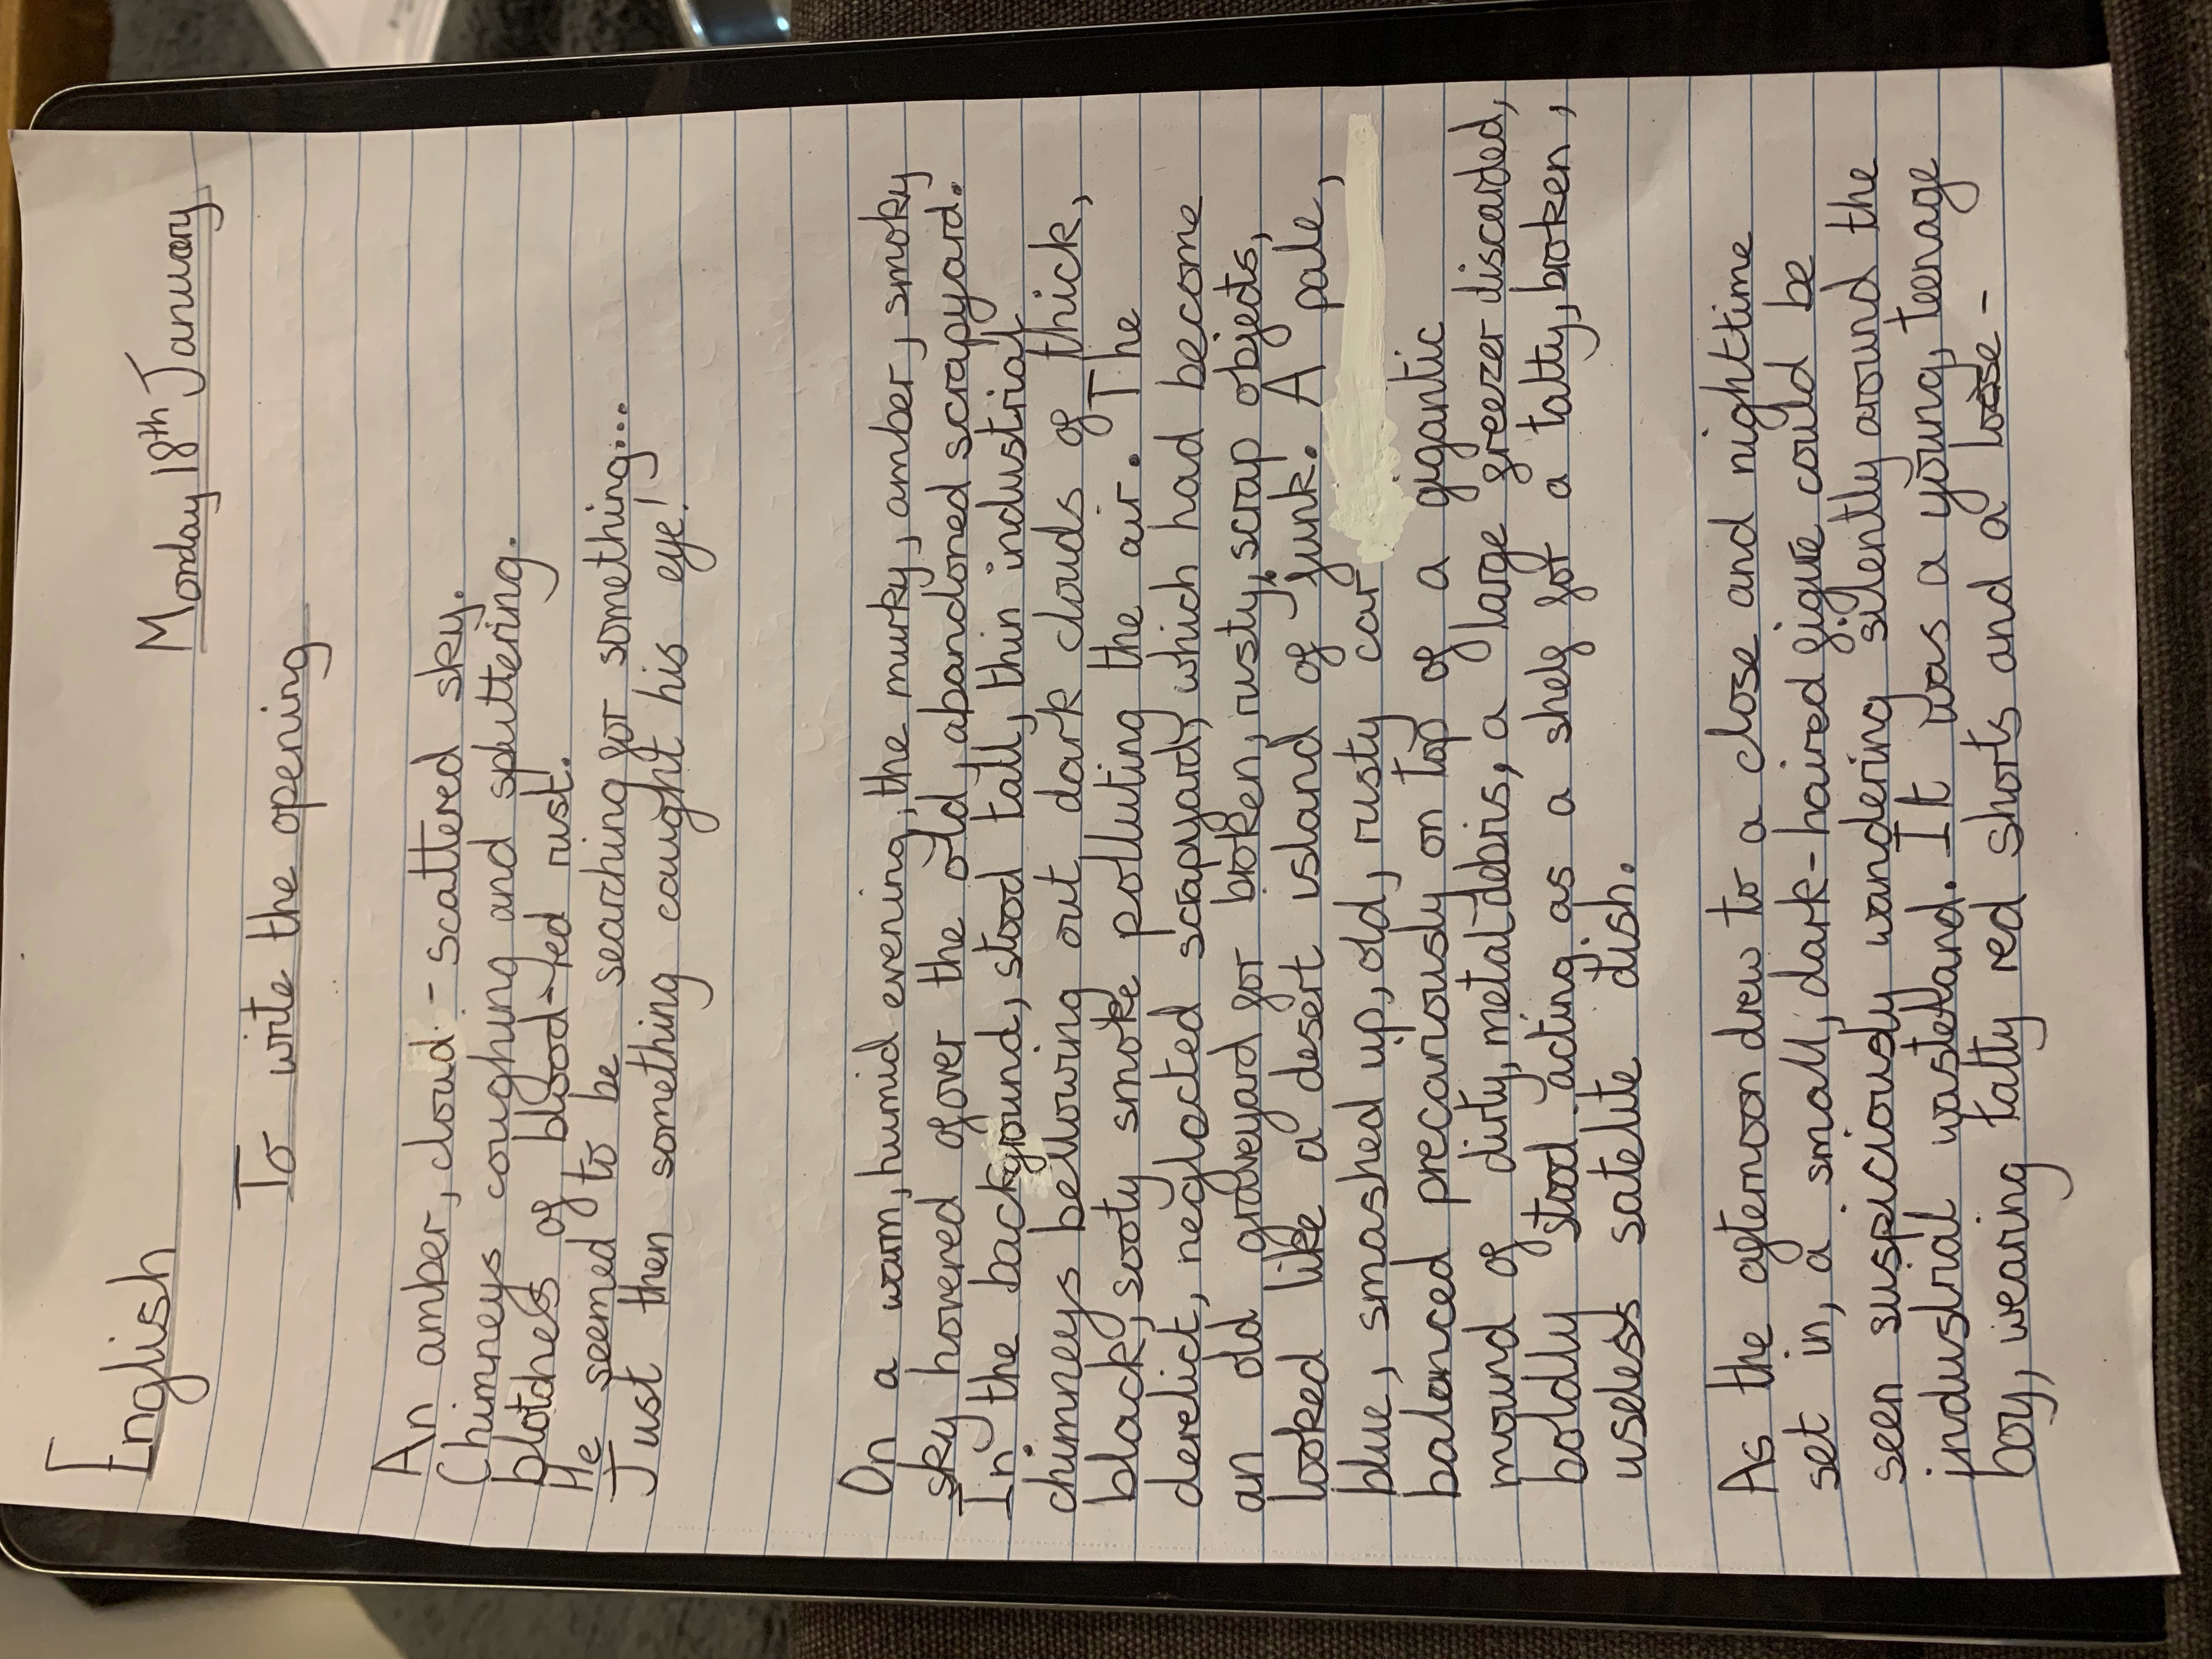 English
Monday 18th January
To write the opening
An amber, cloud - scattered sky.
Chimneys coughing and spluttering.
blotches of blood-red rust.
He seemed to be searching for something...
Just then something caught his eye!
On a warm, humid evening, the murky, amber, smoky
sky hovered over the old, abandoned scrapyard.
In the background, stood tall, thin industrial
chimneys bellowing out dark clouds of thick,
black, sooty smoke polluting the air. The
derelict, neglected scrapyard, which had become
an old graveyard for broken, rusty, scrap objects,
looked like a desert island of junk. A pale,
blue, smashed up, old, rusty car
balanced precariously on top of a gigantic
mound of dirty, metal debris, a large freezer discarded,
boldly stood acting as a shelf for a tatty, broken,
useless satelite dish.
As the afternoon drew to a close and nightime
set in, a small, dark-haired figure could be
seen suspiciously wandering silently around the
industrial wasteland. It was a young, teenage
boy, wearing tatty red shorts and a loose -